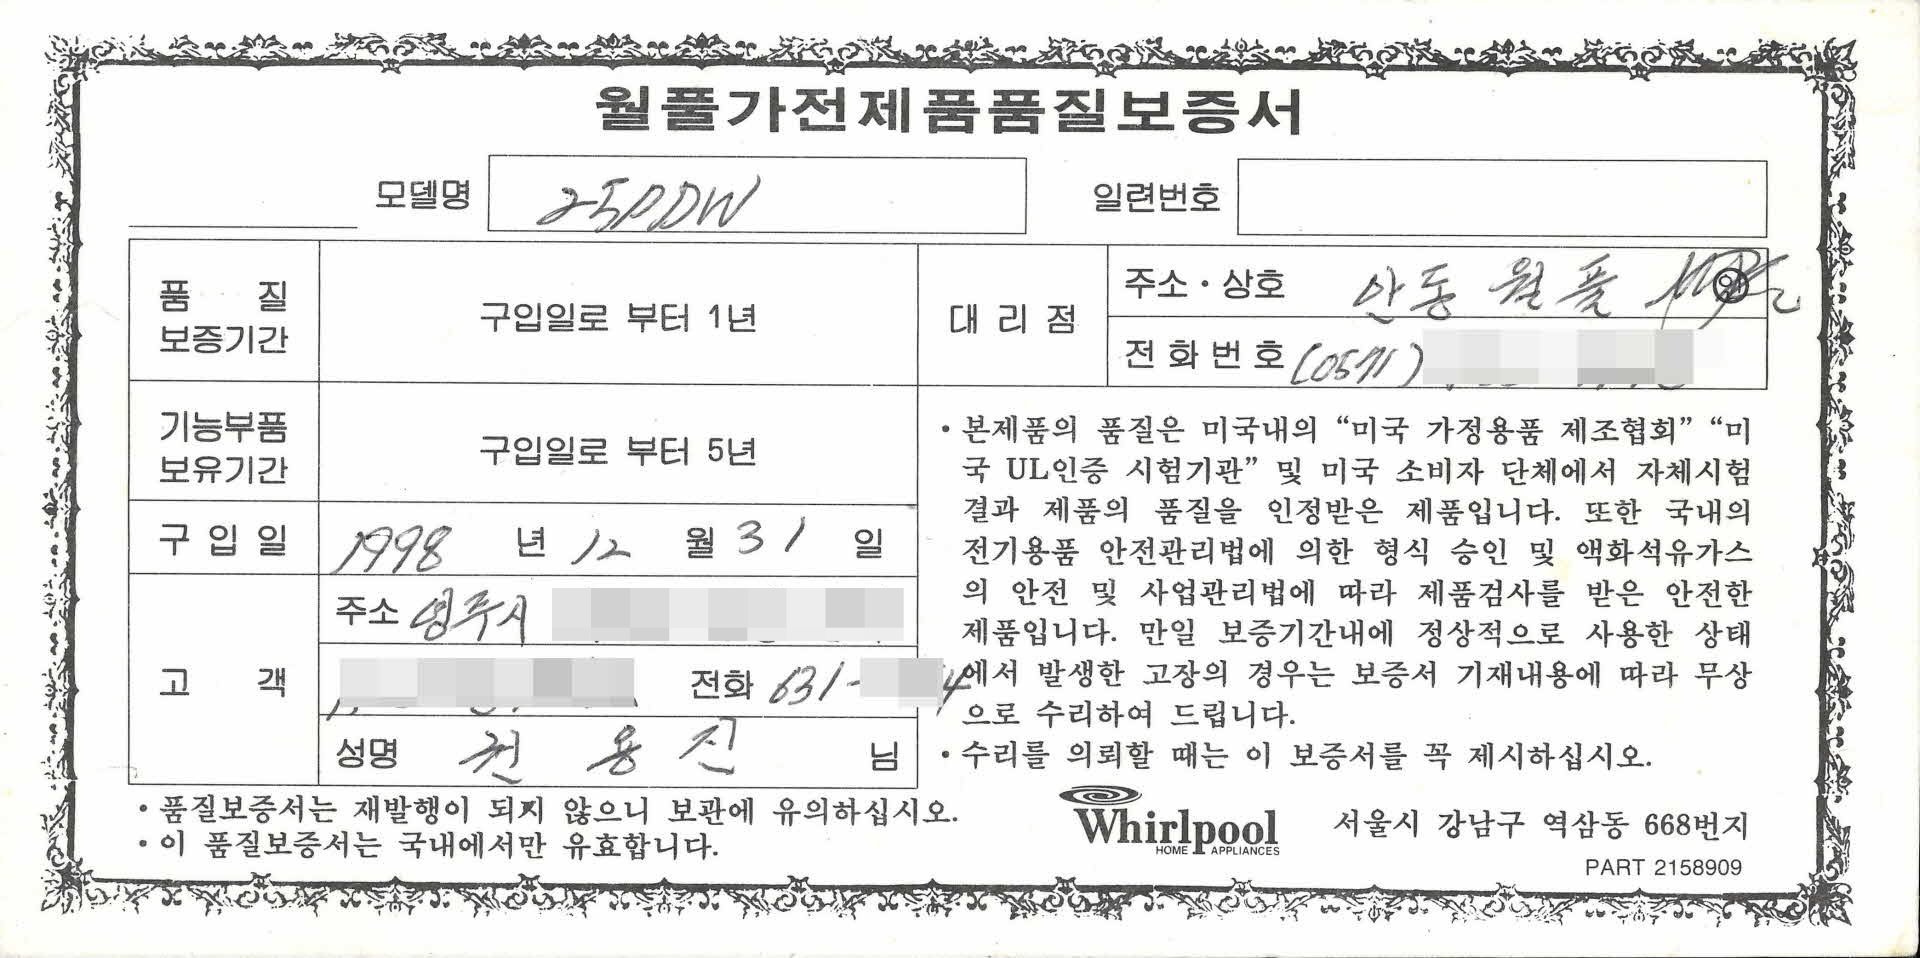 월풀가전제품품질보증서
모델명 25DDW 일련번호
품질 보증기간 구입일로 부터 1년
대리점 주소·상호 안동 월풀
전화번호 (0571)
기능부품 보유기간 구입일로 부터 5년
구입일 1998 년 12 월 31 일
고객 주소 영주시
전화 631-
성명 권용진 님
• 본제품의 품질은 미국내의 “미국 가정용품 제조협회” “미
국 UL인증 시험기관” 및 미국 소비자 단체에서 자체시험
결과 제품의 품질을 인정받은 제품입니다. 또한 국내의
전기용품 안전관리법에 의한 형식 승인 및 액화석유가스
의 안전 및 사업관리법에 따라 제품검사를 받은 안전한
제품입니다. 만일 보증기간내에 정상적으로 사용한 상태
에서 발생한 고장의 경우는 보증서 기재내용에 따라 무상
으로 수리하여 드립니다.
• 수리를 의뢰할 때는 이 보증서를 꼭 제시하십시오.
• 품질보증서는 재발행이 되지 않으니 보관에 유의하십시오.
• 이 품질보증서는 국내에서만 유효합니다.
Whirlpool
HOME APPLIANCES
서울시 강남구 역삼동 668번지
PART 2158909